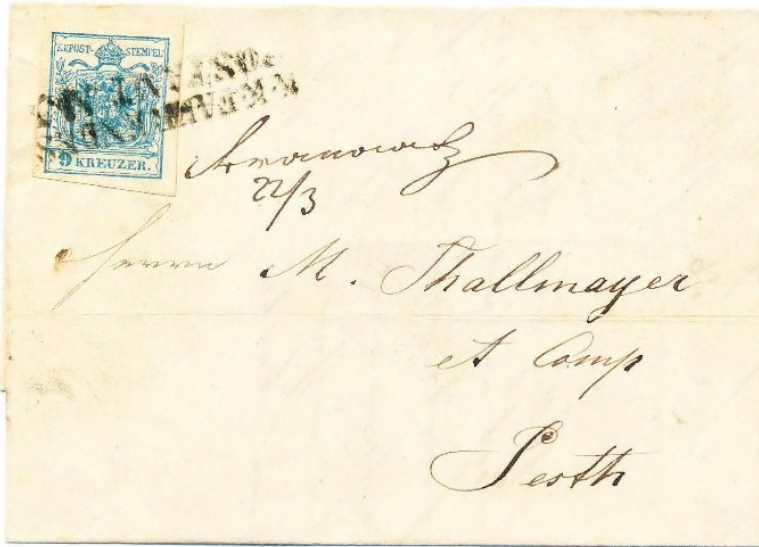 KKPOST-STEMPEL
9 KREUZER.
22/3
Herrn M. Thallmayer
et Comp
Pesth